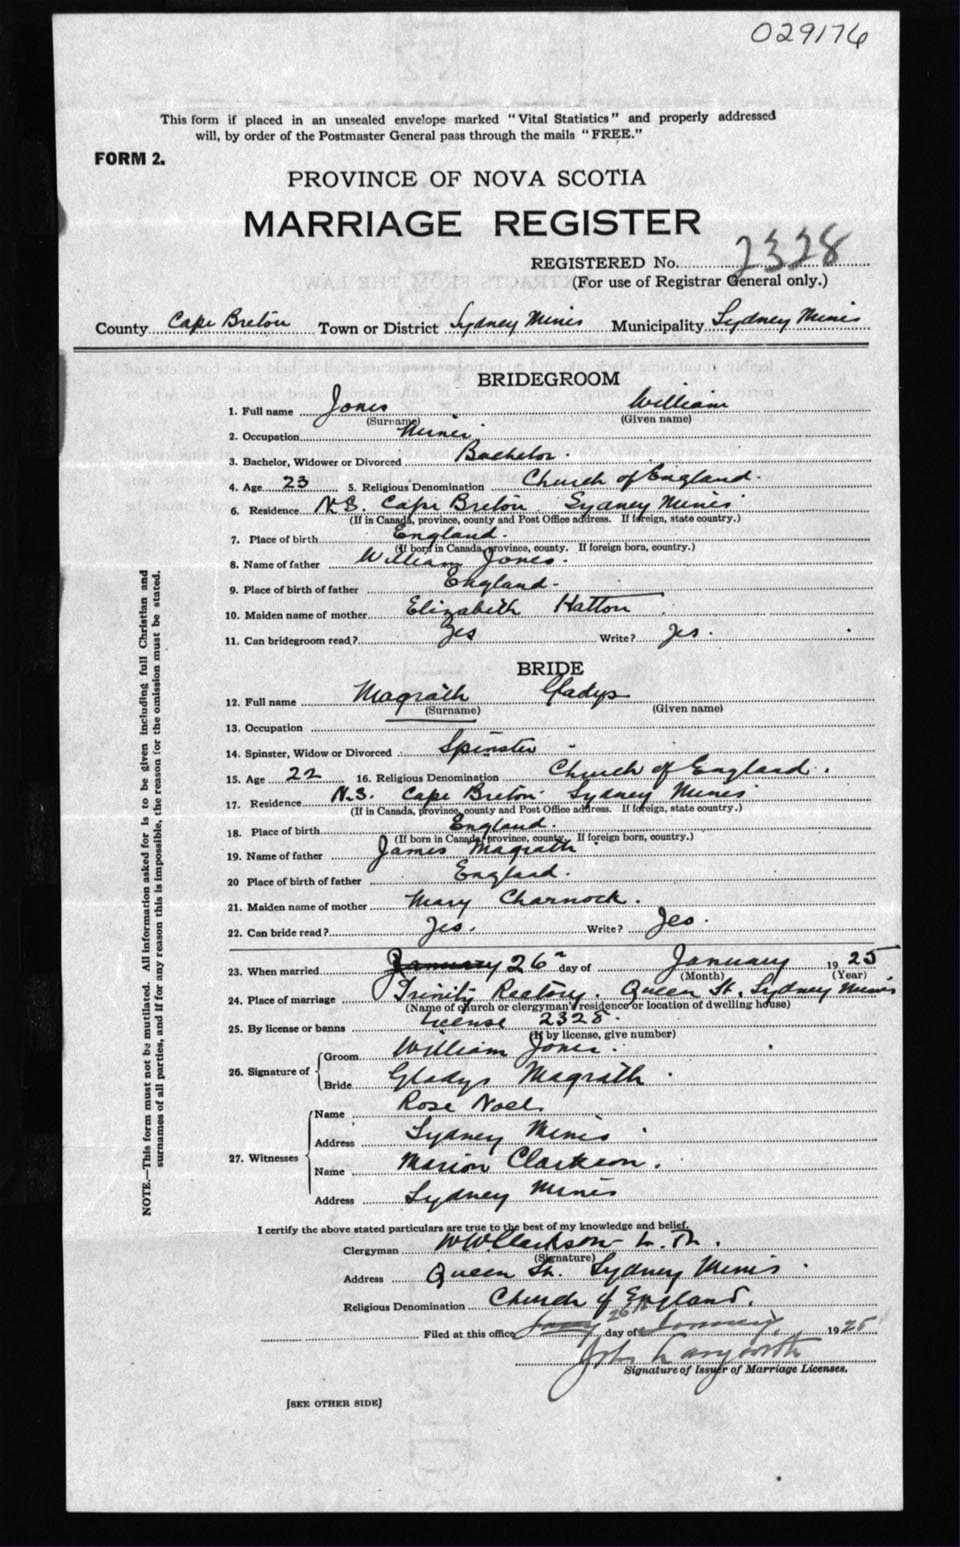 029176
This form if placed in an unsealed envelope marked "Vital Statistics" and properly addressed
will, by order of the Postmaster General pass through the mails "FREE."
FORM 2.
PROVINCE OF NOVA SCOTIA
MARRIAGE REGISTER
REGISTERED No. 2328
(For use of Registrar General only.)
County Cape Breton Town or District Sydney Mines Municipality Sydney Mines
BRIDEGROOM
1. Full name Jones William
(Surname) (Given name)
2. Occupation Miner
3. Bachelor, Widower or Divorced Bachelor.
4. Age 23 5. Religious Denomination Church of England.
6. Residence N.S. Cape Breton Sydney Mines
(If in Canada, province, county and Post Office address. If foreign, state country.)
7. Place of birth England.
(If born in Canada, province, county. If foreign born, country.)
8. Name of father William Jones.
9. Place of birth of father England.
10. Maiden name of mother Elizabeth Hatton
11. Can bridegroom read? Yes Write? Yes.
BRIDE
12. Full name Magrath Gladys
(Surname) (Given name)
13. Occupation
14. Spinster, Widow or Divorced Spinster
15. Age 22 16. Religious Denomination Church of England.
17. Residence N.S. Cape Breton Sydney Mines
(If in Canada, province, county and Post Office address. If foreign, state country.)
18. Place of birth England.
(If born in Canada, province, county. If foreign born, country.)
19. Name of father James Magrath
20 Place of birth of father England.
21. Maiden name of mother Mary Charnock.
22. Can bride read? Yes. Write? Yes.
23. When married January 26th day of January 1925
(Month) (Year)
24. Place of marriage Trinity Rectory. Queen St. Sydney Mines
(Name of church or clergyman's residence or location of dwelling house)
25. By license or banns License 2328.
(If by license, give number)
26. Signature of Groom William Jones.
Bride Gladys Magrath.
27. Witnesses Name Rose Noel
Address Sydney Mines
Name Marion Clarkson.
Address Sydney Mines
I certify the above stated particulars are true to the best of my knowledge and belief.
Clergyman W W Clarkson L. Th.
(Signature)
Address Queen St. Sydney Mines.
Religious Denomination Church of England.
Filed at this office 26th day of January 1925
John Langworth
Signature of Issuer of Marriage Licenses.
[SEE OTHER SIDE]
NOTE.—This form must not be mutilated. All information asked for is to be given including full Christian and
surnames of all parties, and if for any reason this is impossible, the reason for the omission must be stated.